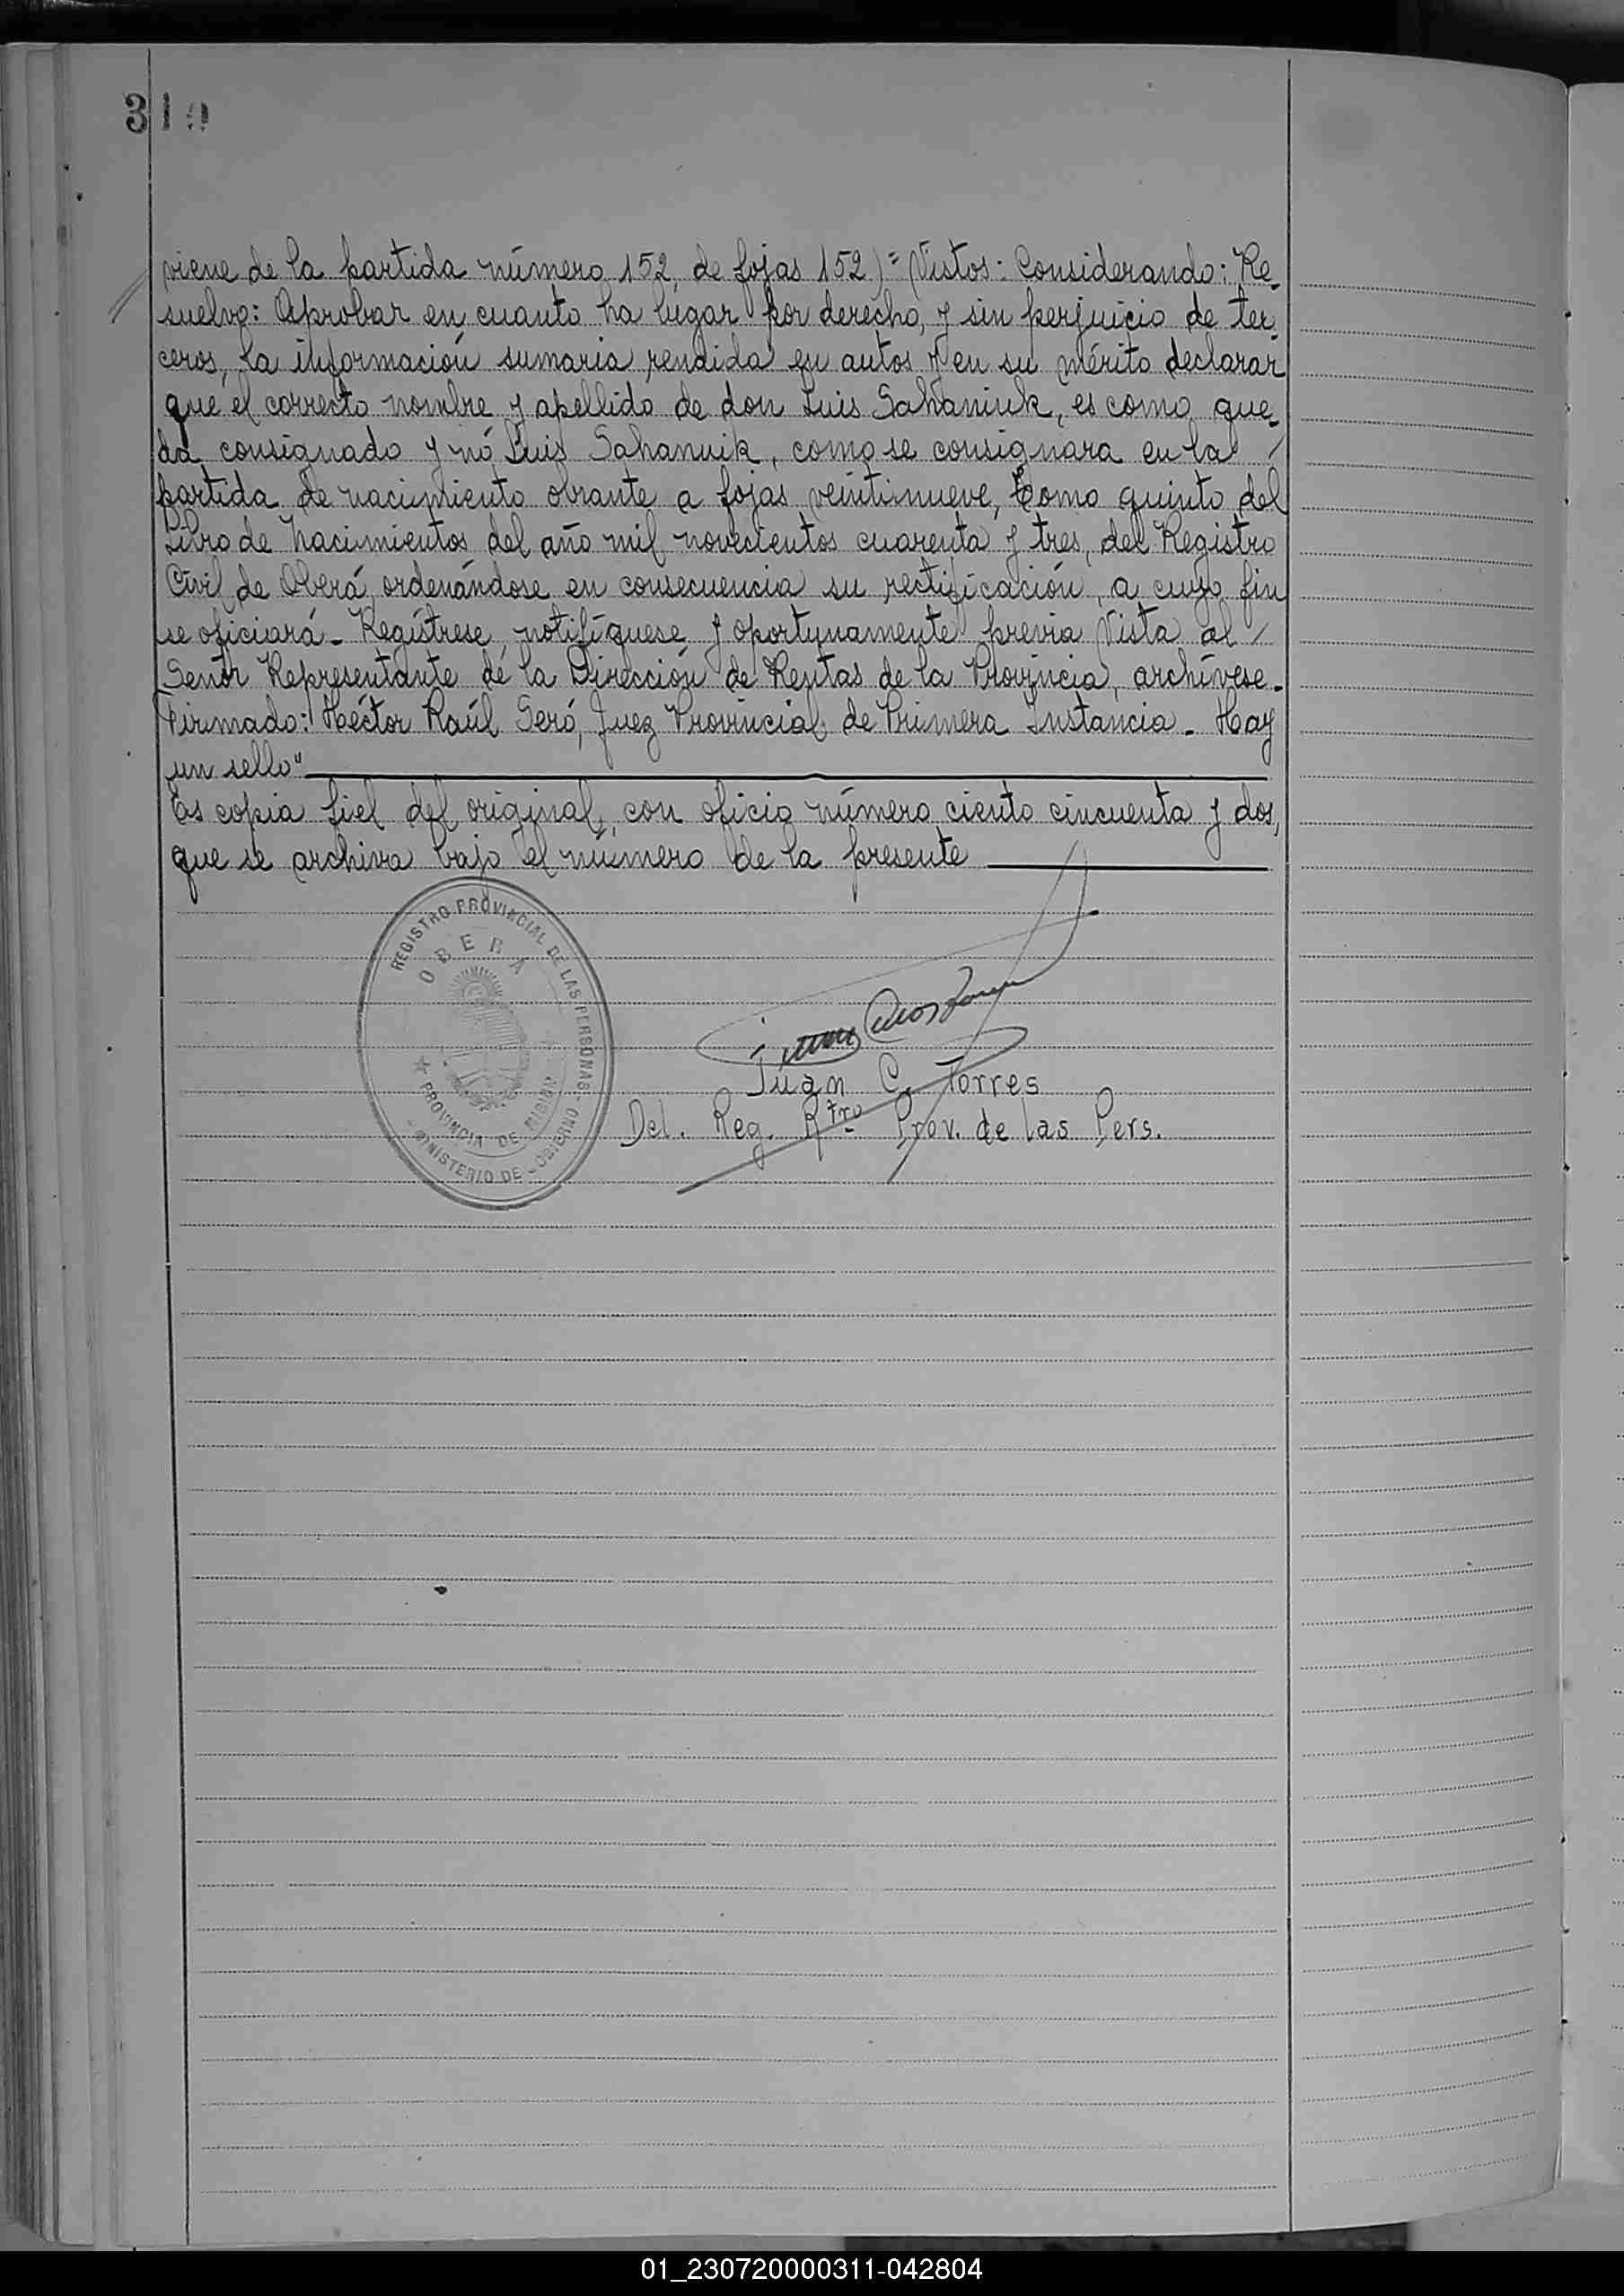 31
viene de la partida número 152, de fojas 152)= Vistos: Considerando: Re-
suelvo: Aprobar en cuanto ha lugar por derecho, y sin perjuicio de ter-
ceros, la información sumaria rendida en autos y en su mérito declarar
que el correcto nombre y apellido de don Luis Sahaniuk, es como que-
da consignado y nó Luis Sahanuik, como se consignara en la /
partida de nacimiento obrante a fojas veintinueve, tomo quinto del
Libro de Nacimientos del año mil novecientos cuarenta y tres, del Registro
Civil de Oberá, ordenándose en consecuencia su rectificación, a cuyo fin
se oficiará - Regístrese, notifíquese y oportunamente previa Vista al /
Señor Representante de la Dirección de Rentas de la Provincia, archívese -
Firmado: Héctor Raúl Seró, Juez Provincial de Primera Instancia - Hay
un sello"
Es copia fiel del original, con oficio número ciento cincuenta y dos,
que se archiva bajo el número de la presente
REGISTRO PROVINCIAL DE LAS PERSONAS
OBERÁ
PROVINCIA DE MISIONES
MINISTERIO DE GOBIERNO
Juan C. Torres
Del. Reg. Rtro Prov. de las Pers.
01_230720000311-042804